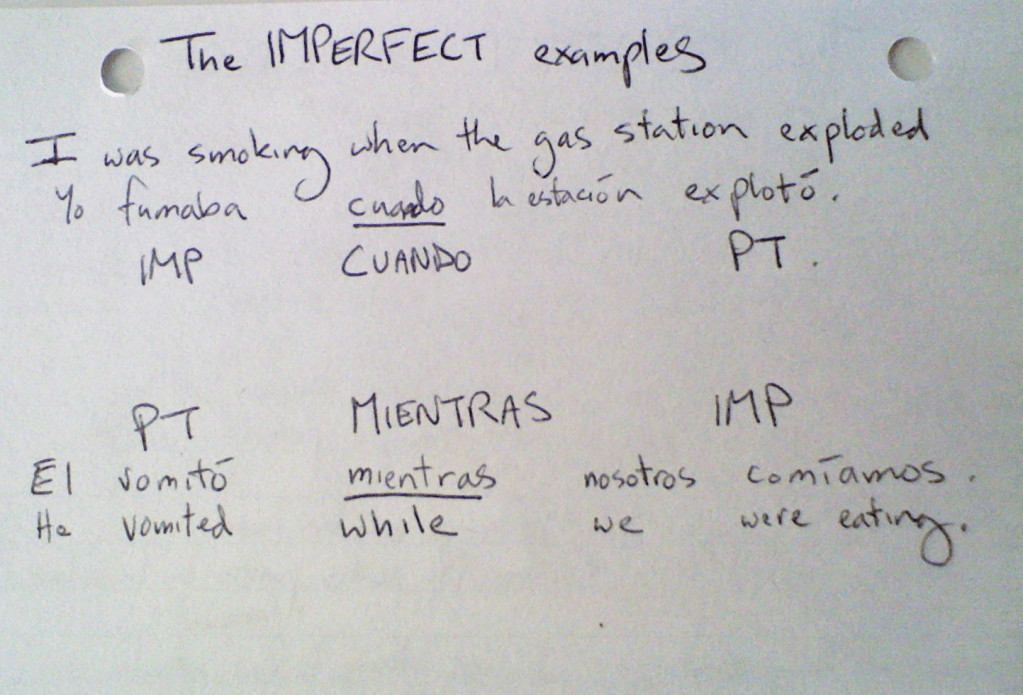 The IMPERFECT examples
I was smoking when the gas station exploded
Yo fumaba cuando la estación explotó.
IMP CUANDO PT.
PT MIENTRAS IMP
El vomitó mientras nosotros comíamos.
He vomited while we were eating.